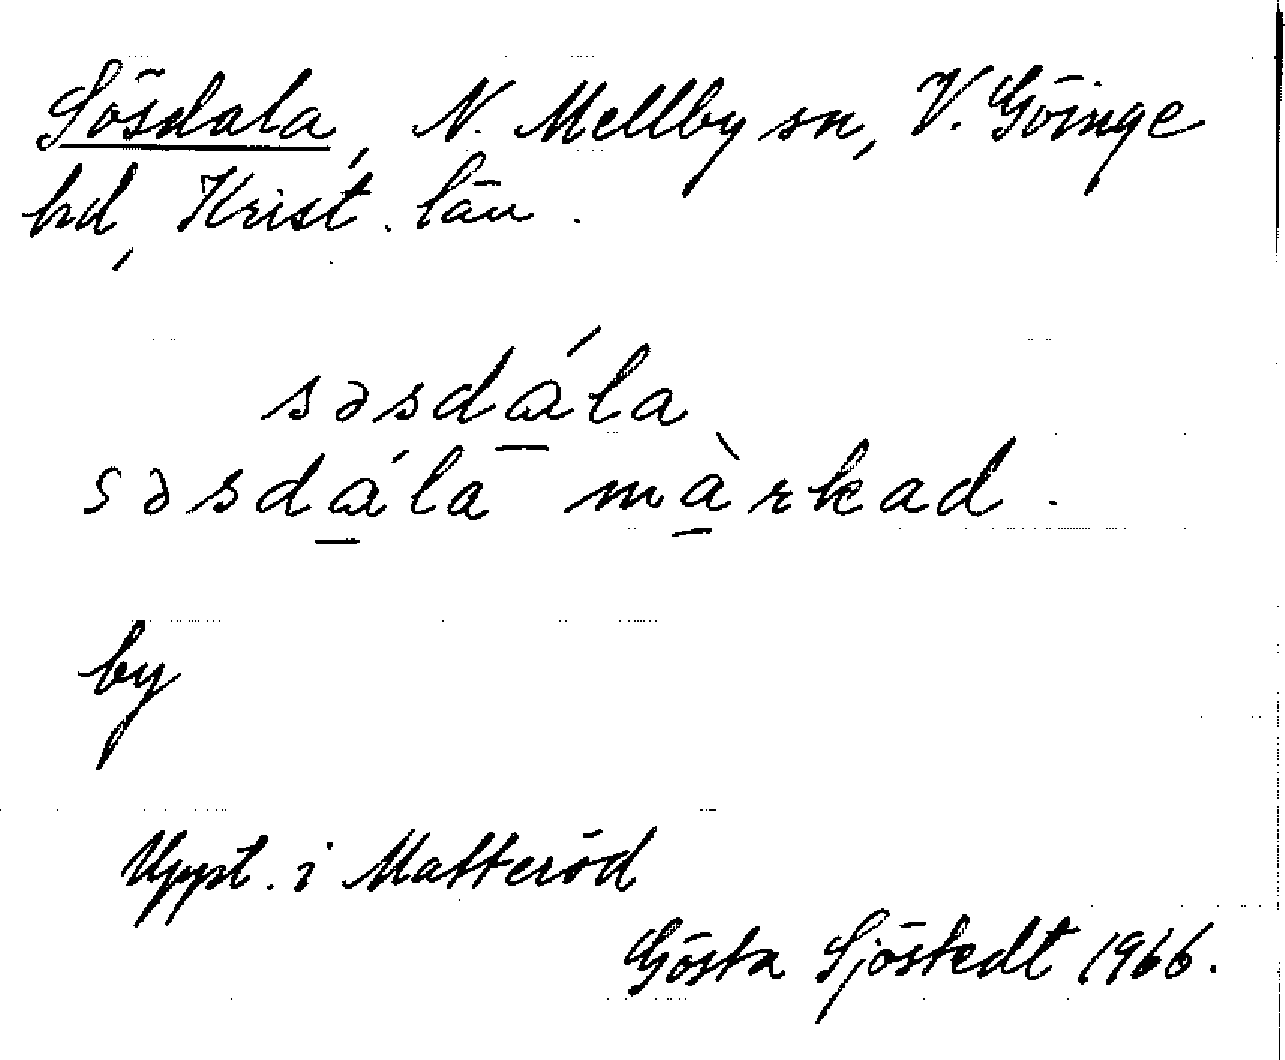 Sösdala, N. Mellby sn, V. Göinge
hd, Krist. län.
səsdɑ̱́la
səsdɑ̱́la mà̱rkad.
by
Uppt. i Matteröd
Gösta Sjöstedt 1966.